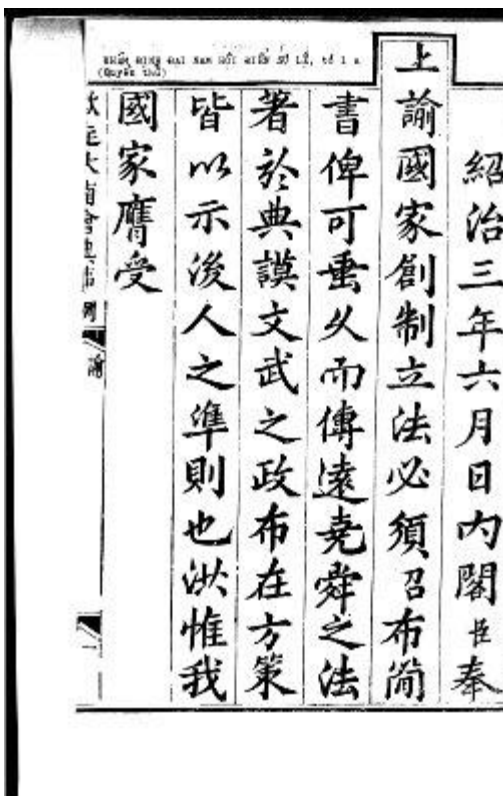 KHÂM ĐỊNH ĐẠI NAM HỘI ĐIỂN SỰ LỆ, tờ 1 a
(Quyển thủ)
紹治三年六月日内閣臣奉
上諭國家創制立法必須召布簡
書俾可垂久而傳遠堯舜之法
著於典謨文武之政布在方策
皆以示後人之準則也洪惟我
國家膺受
欽定大南會典事例
諭
一